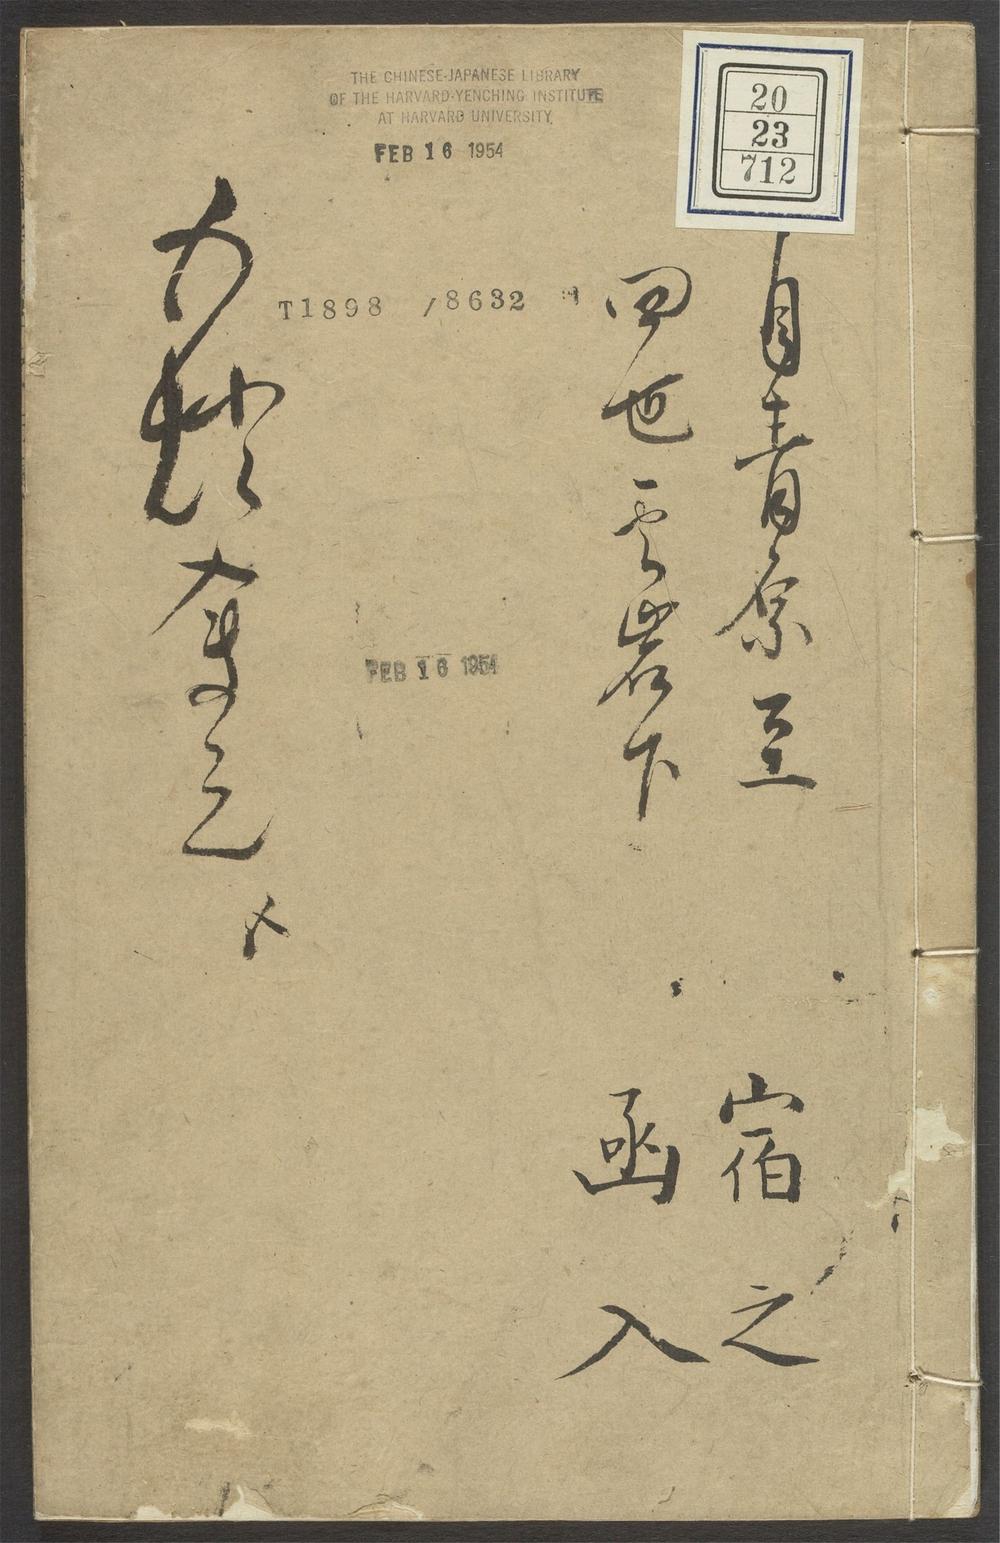 THE CHINESE-JAPANESE LIBRARY
OF THE HARVARD-YENCHING INSTITUTE
AT HARVARD UNIVERSITY
FEB 16 1954
20
23
712
T1898 /8632
自青原至
四世雲岩下
宿之
函入
五燈會元
FEB 16 1954